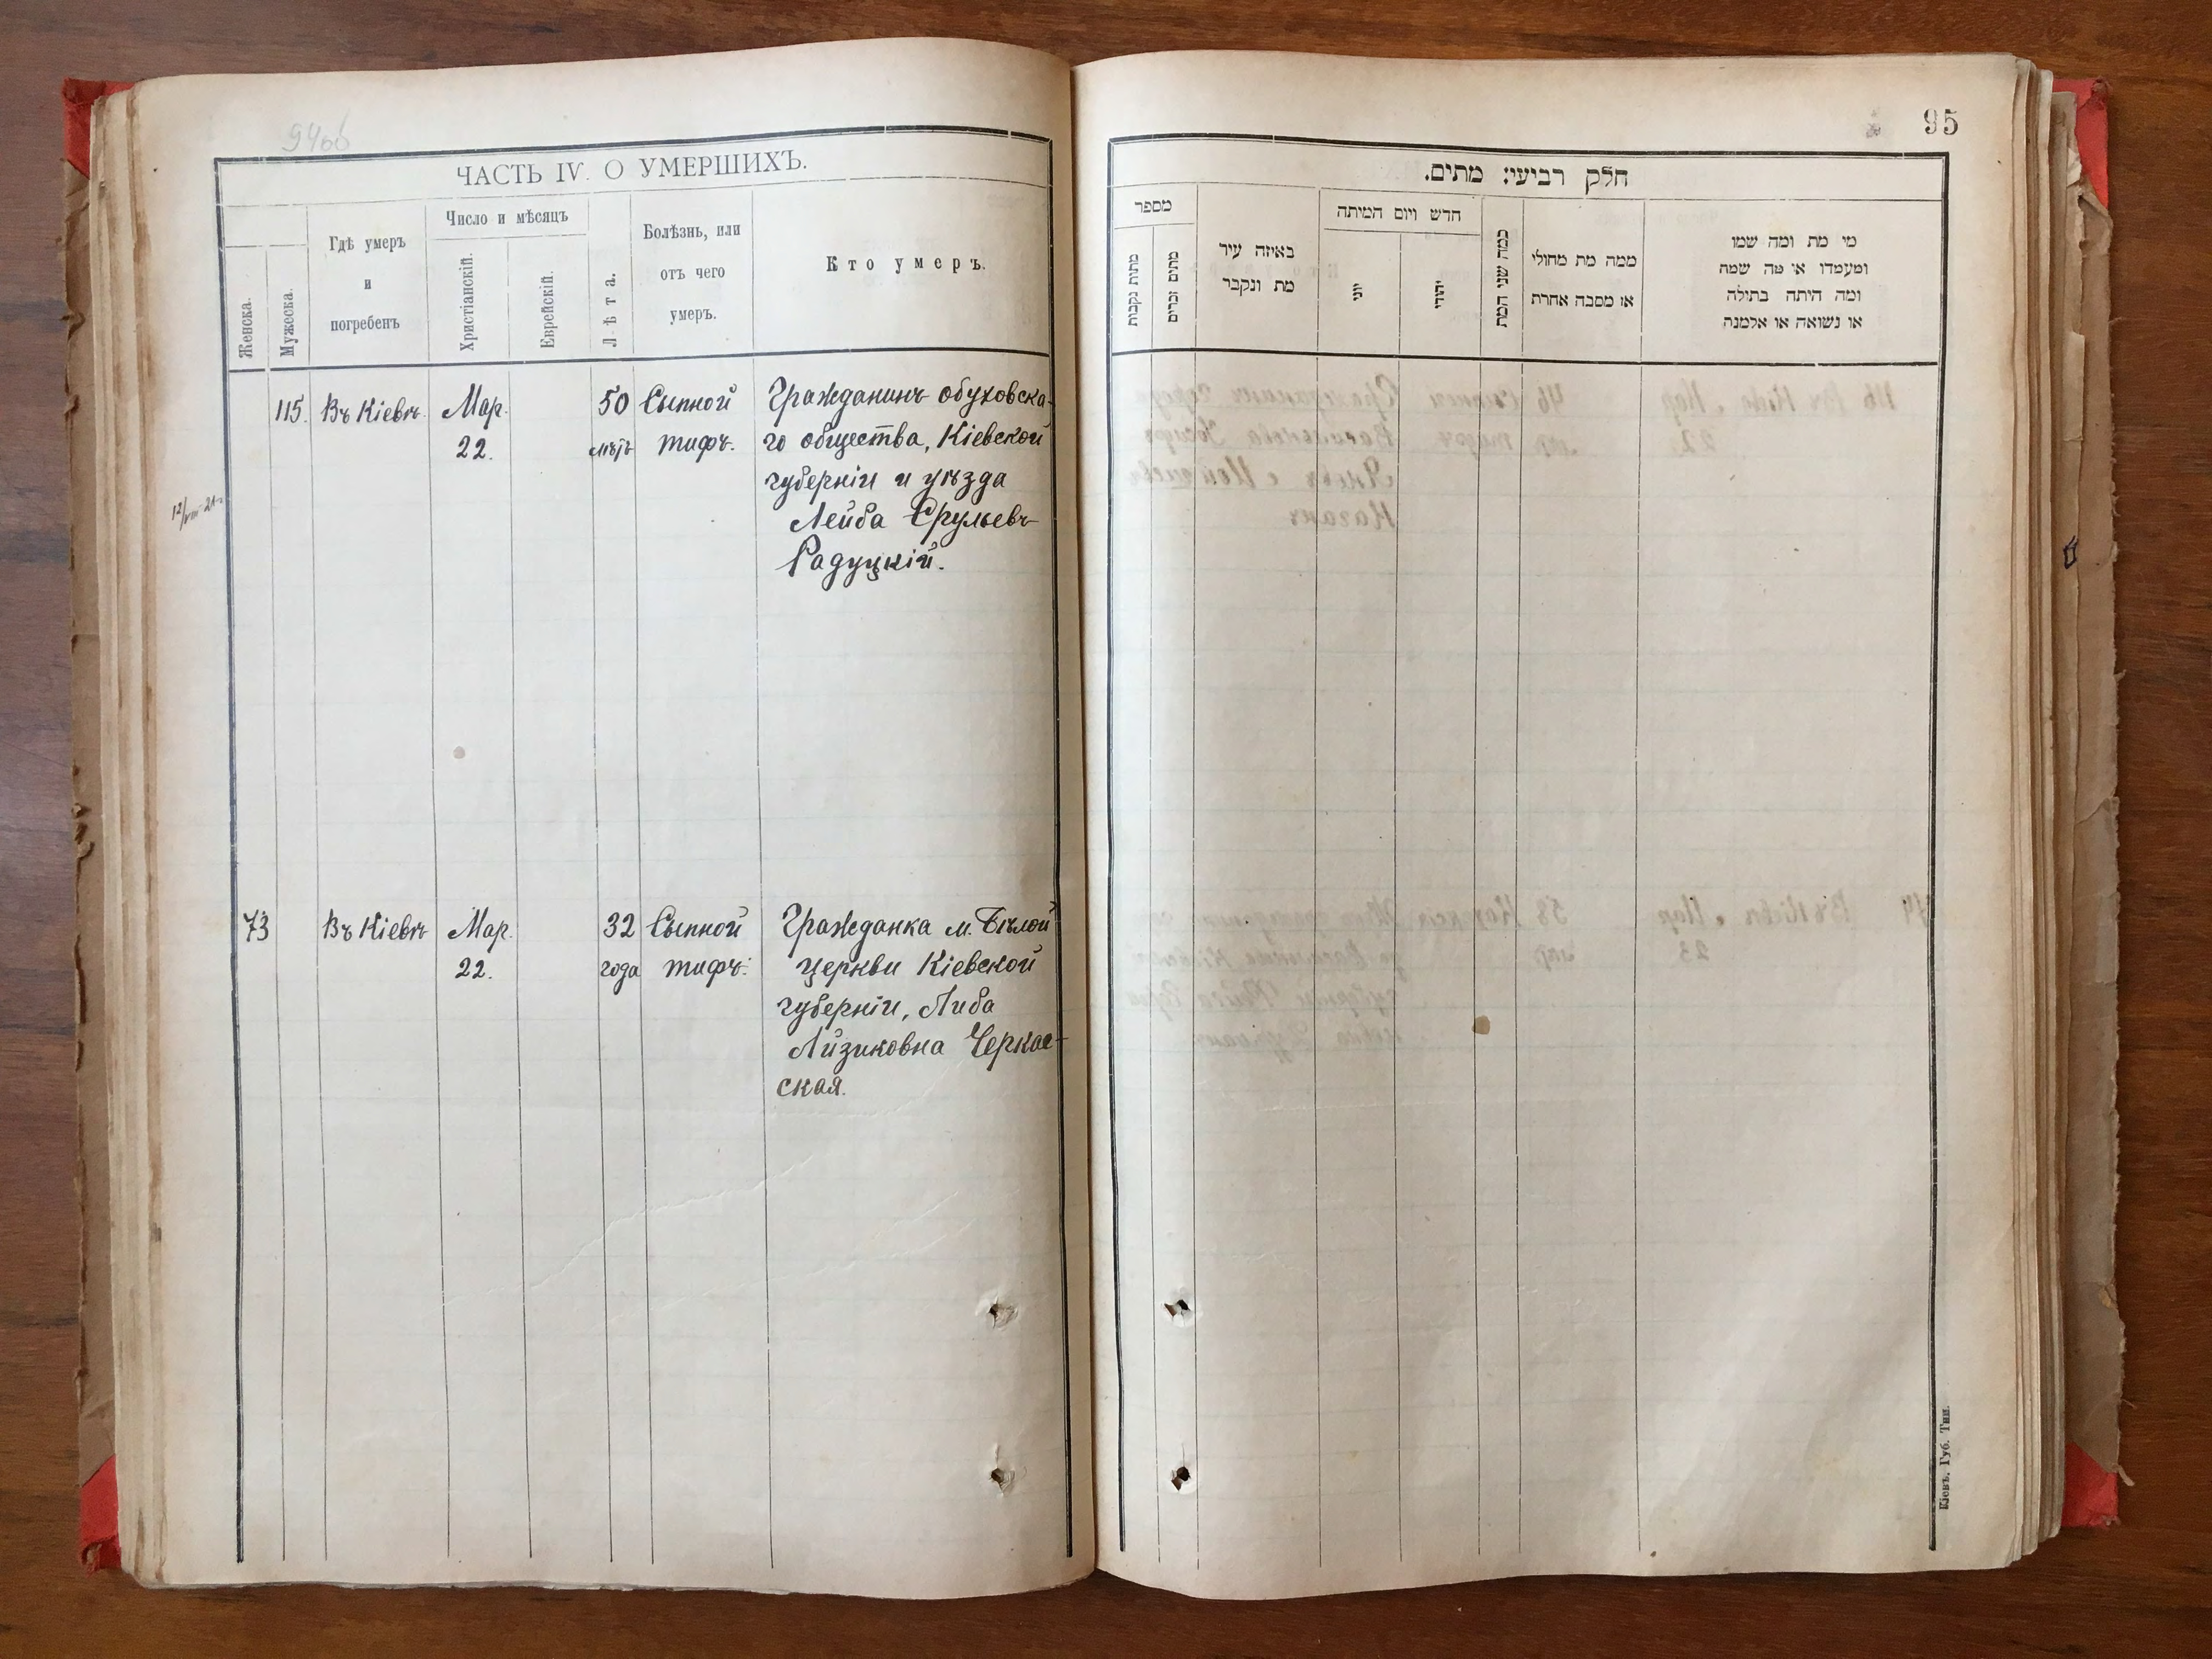 94об
ЧАСТЬ IV. О УМЕРШИХЪ.
Женска.
Мужеска.
Гдѣ умеръ
и
погребенъ
Число и мѣсяцъ
Христіанскій.
Еврейскій.
Лѣта.
Болѣзнь, или
отъ чего
умеръ.
Кто умеръ.
115. Въ Кіевѣ. Мар. 50 Сыпной Гражданинъ обуховска-
22. лѣтъ тифъ. го общества, Кіевской
губерніи и уѣзда
Лейба Срульевъ
Радуцкій.
73 Въ Кіевѣ Мар. 32 Сыпной Гражданка м. Бѣлой
22. года тифъ. церкви Кіевской
губерніи, Либа
Айзиковна Черкас-
ская.
95
חלק רביעי: מתים.
מספר
מתות נקבות
מתים זכרים
באיזה עיר
מת ונקבר
חדש ויום המיתה
יוני
יהודי
כמה שני המת
ממה מת מחולי
או מסבה אחרת
מי מת ומה שמו
ומעמדו או מה שמה
ומה היתה בתילה
או נשואה או אלמנה
Кіевъ. Губ. Тип.